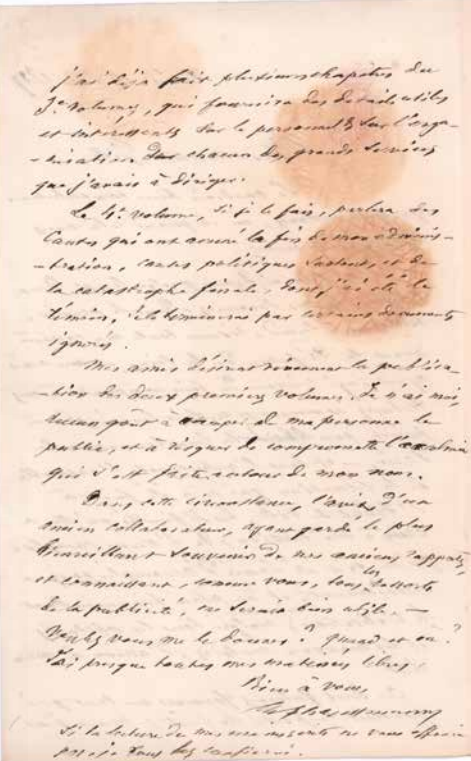 j'ai déjà fait plusieurs chapitres du
3e volume, qui fournira des détails utiles
et intéressants sur le personnel & sur l'orga-
-nisation de chacun des grands services
que j'avais à diriger.
Le 4e volume, si je le fais, parlera des
causes qui ont amené la fin de mon adminis-
-tration, causes politiques surtout, et de
la catastrophe finale, dont j'ai été le
témoin, il se terminerai par certains documents
ignorés.
Mes amis désirent vivement la publica-
-tion des deux premiers volumes. Je n'ai moi,
aucun goût à occuper de ma personne le
public, et à risquer de compromettre l'accalmie
qui s'est faite autour de mon nom.
Dans cette circonstance, l'avis d'un
ancien collaborateur, ayant gardé le plus
bienveillant souvenir de nos anciens rapports,
et connaissant, comme vous, tous les ressorts
de la publicité, me serait bien utile. —
Voulez vous me le donner ? quand et où ?
J'ai presque toutes mes matinées libres.
Bien à vous,
Si la lecture de mes manuscrits ne vous effraie
pas je vous les confierai.